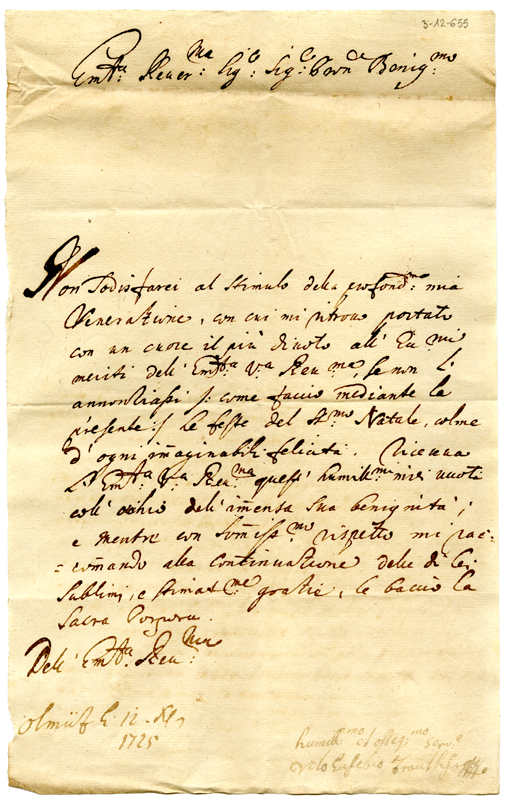 3-12-655
Em:ta Rever:ma Sig:e Sig:e Prn:e Benig:mo
Non sodisfarei al stimulo della profond:ma mia
Venerazione, con cui mi ritrovo portato
con un cuore il più divoto all'
meriti dell' Em:ta V:a Reu:ma, se non l'
annonziassi /: come faccio mediante la
presente :/ le feste del S:mo Natale, colme
d'ogni immaginabile felicità. Riceva
L'Em:ta V:a Reu:ma questi humill:mi miei vuoti
coll' occhio dell' immensa sua benignità;
e mentre con somiss:mo rispetto mi rac=
=commando alla continuazione delle di lei
sublimi, e stimat:me grazie, le baccio la
Sacra Porpora.
Dell' Em:ta Reu:ma
Olmüz li 12. X
1725
humill:mo et osseq:mo serv:e